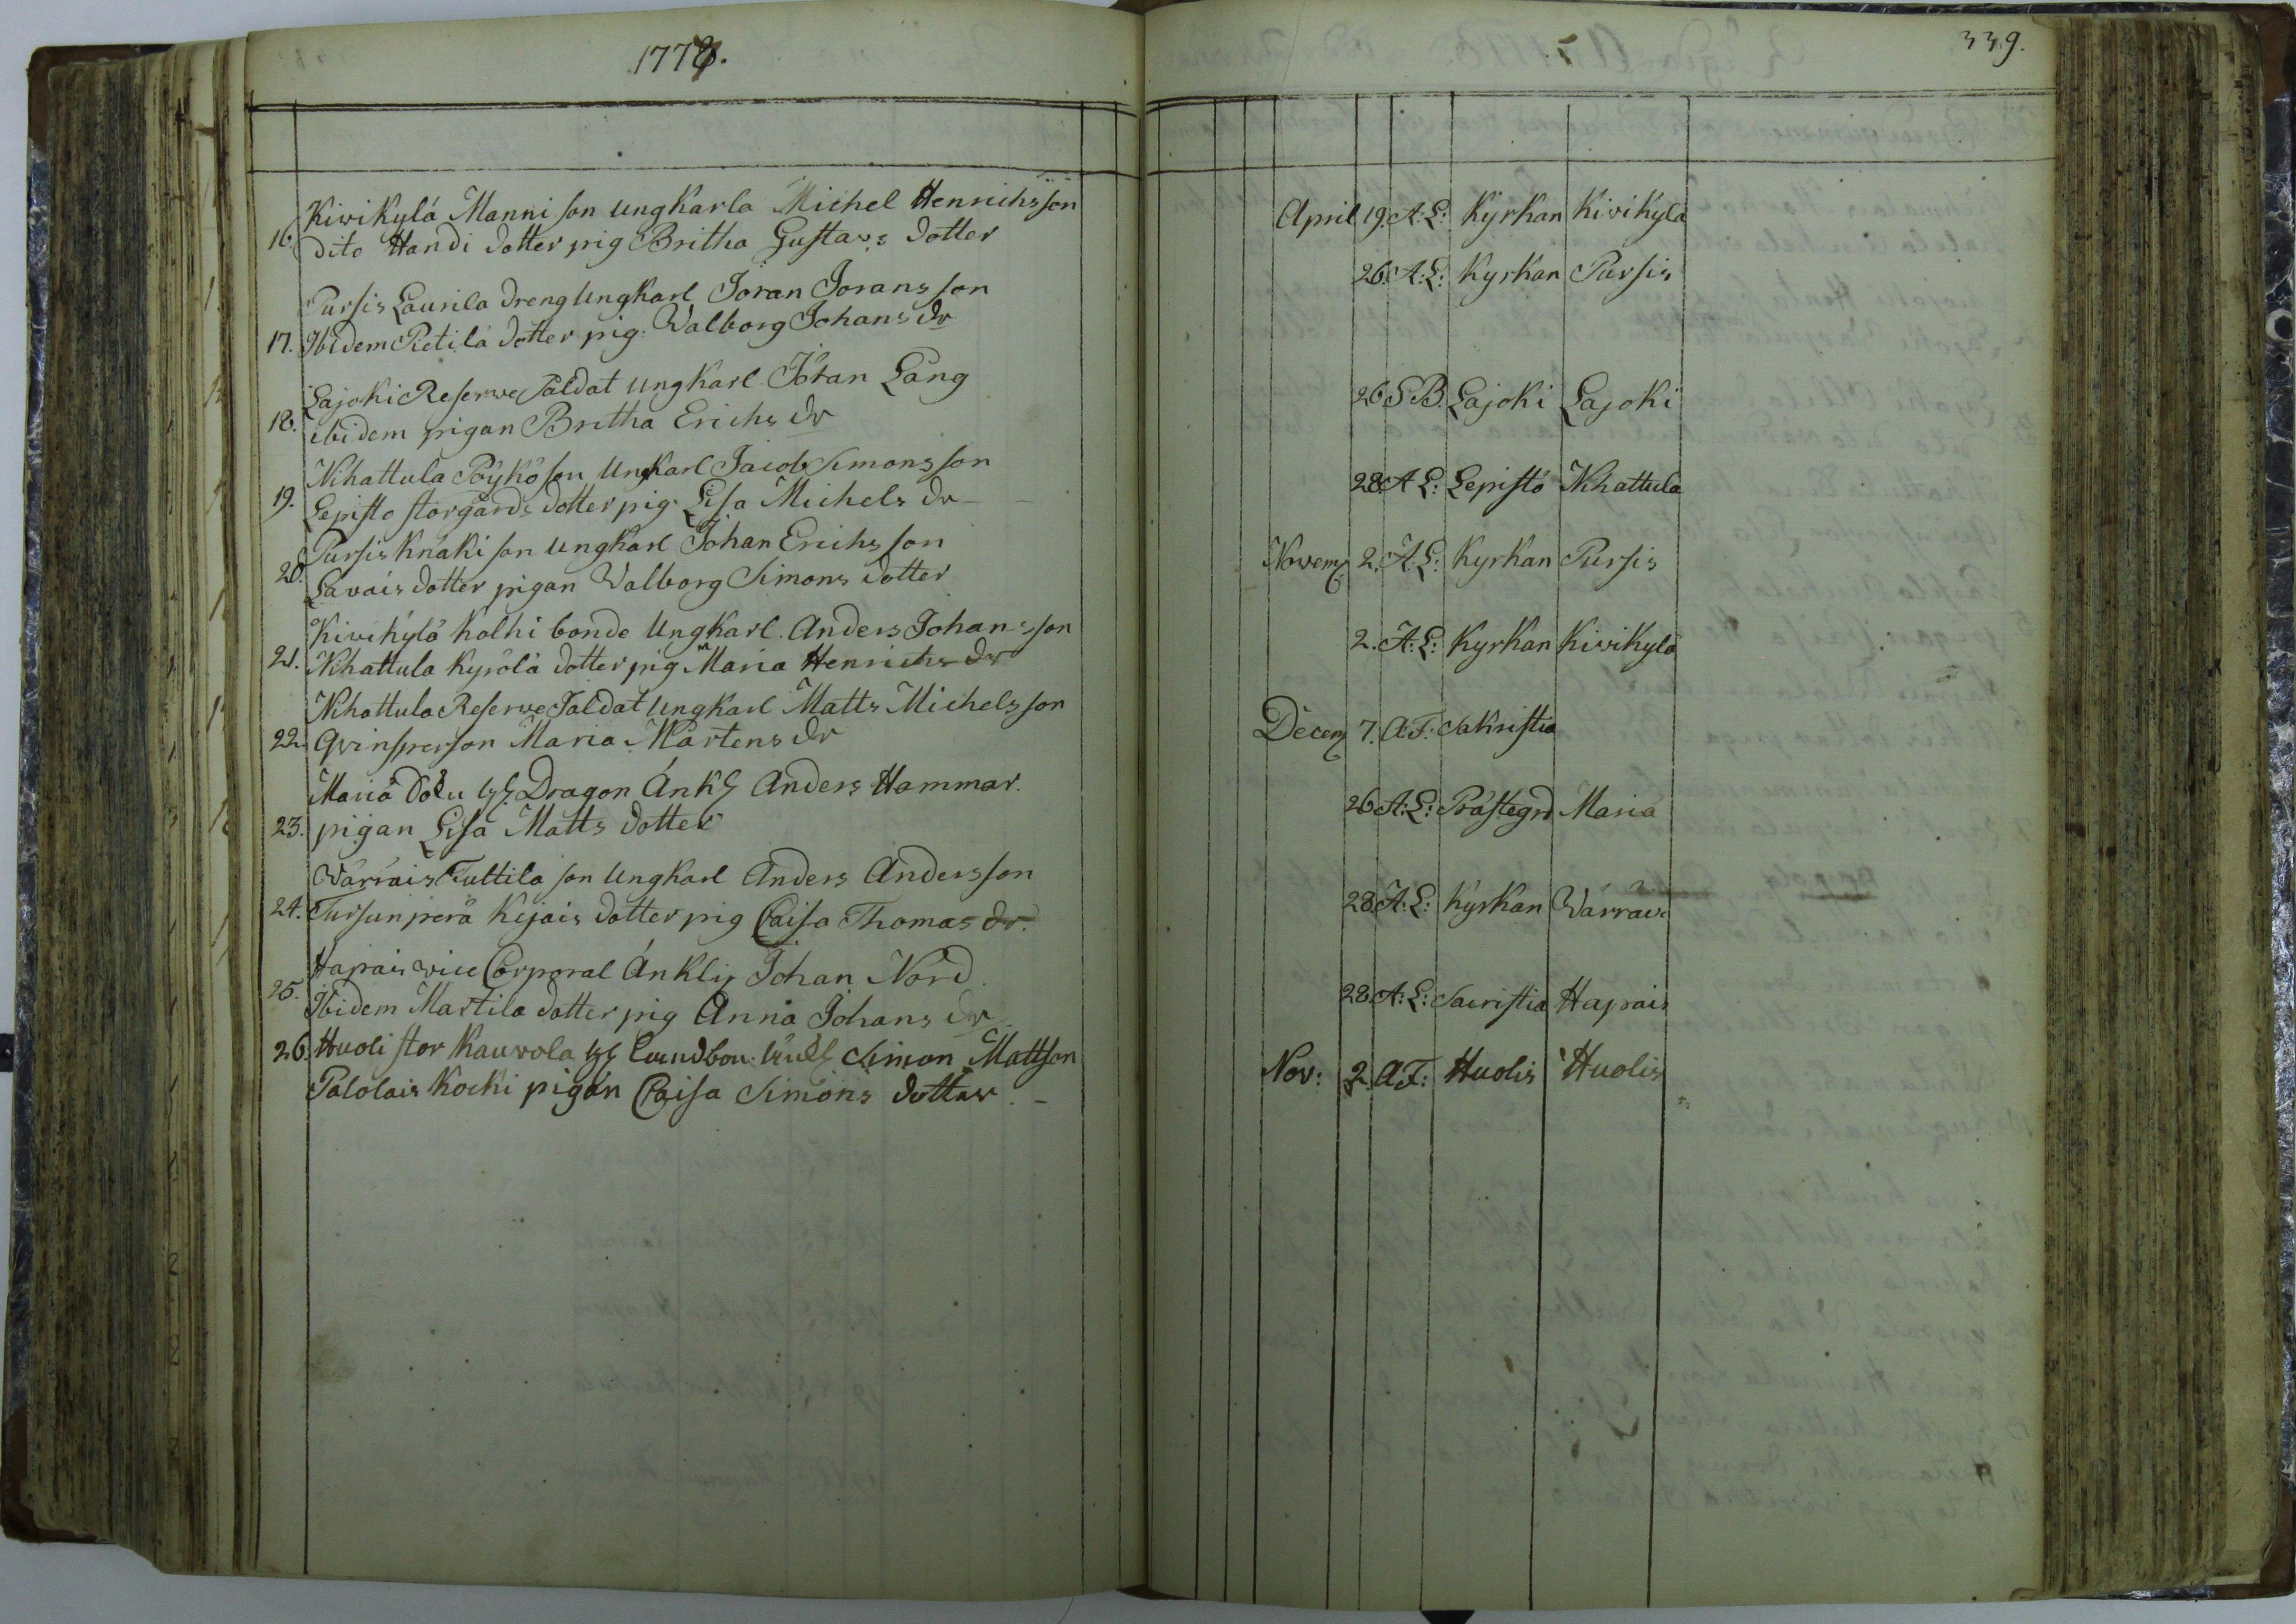 1778.
Kivikylä Manni son ungkarla Michel Henrichsson
16. dito Handi dotter pig Britha Gustavs dotter
Pursis Laurila dreng ungkarl Jöran Jöransson
17. Ibidem Pietilä dotter pig. Walborg Johans dr
Lajoki Reserve Saldat ungkarl Jöran Lang
18. ibidem pigan Britha Erichs dr
Nihattula Pöykö son ungkarl Jacob Simonsson
19. Lepistö storgårds dotter pig. Lisa Michels dr
Pursis Knaki son ungkarl Johan Erichsson
20. Lavais dotter pigan Walborg Simons dotter
Kivikylä Kolhi bonde Ungkarl. Anders Johansson
21. Nihattula Kyrölä dotter pig Maria Henrichs dr
Nihattula Reserve Saldat ungkarl Matts Michelsson
22. Qvinsperson Maria Mårtens dr
Dragon Änkl Anders Hammar.
23. pigan Lisa Matts dotter
Wärräis Tuttila son ungkarl Anders Andersson
24. Tursunperä Kejais dotter pig Caisa Thomas dr.
Hapais vice Corporal Änkling Johan Nord.
25. Ibidem Martila dotter pig Anna Johans dr
26. Huoli stor Kauvola Simon Mattson
Palolais Kocki pigan Caisa Simons dotter. -
339.
April 19. A: L: Kyrkan Kivikylä
26. A: L: Kyrkan Pursis
26 S B. Lajoki Lajoki
28. A L: Lepistö Nihattula
Novem 2. A: L: Kyrkan Pursis
2. A: L: Kyrkan Kivikylä
Decem 7. A: F: Sakristia
26 A: L: Prästegrd Maria
28. A: L: Kyrkan Wärräis
28. A: L: Sacristia Hapais
Nov: 2. A F: Huolis Huolis